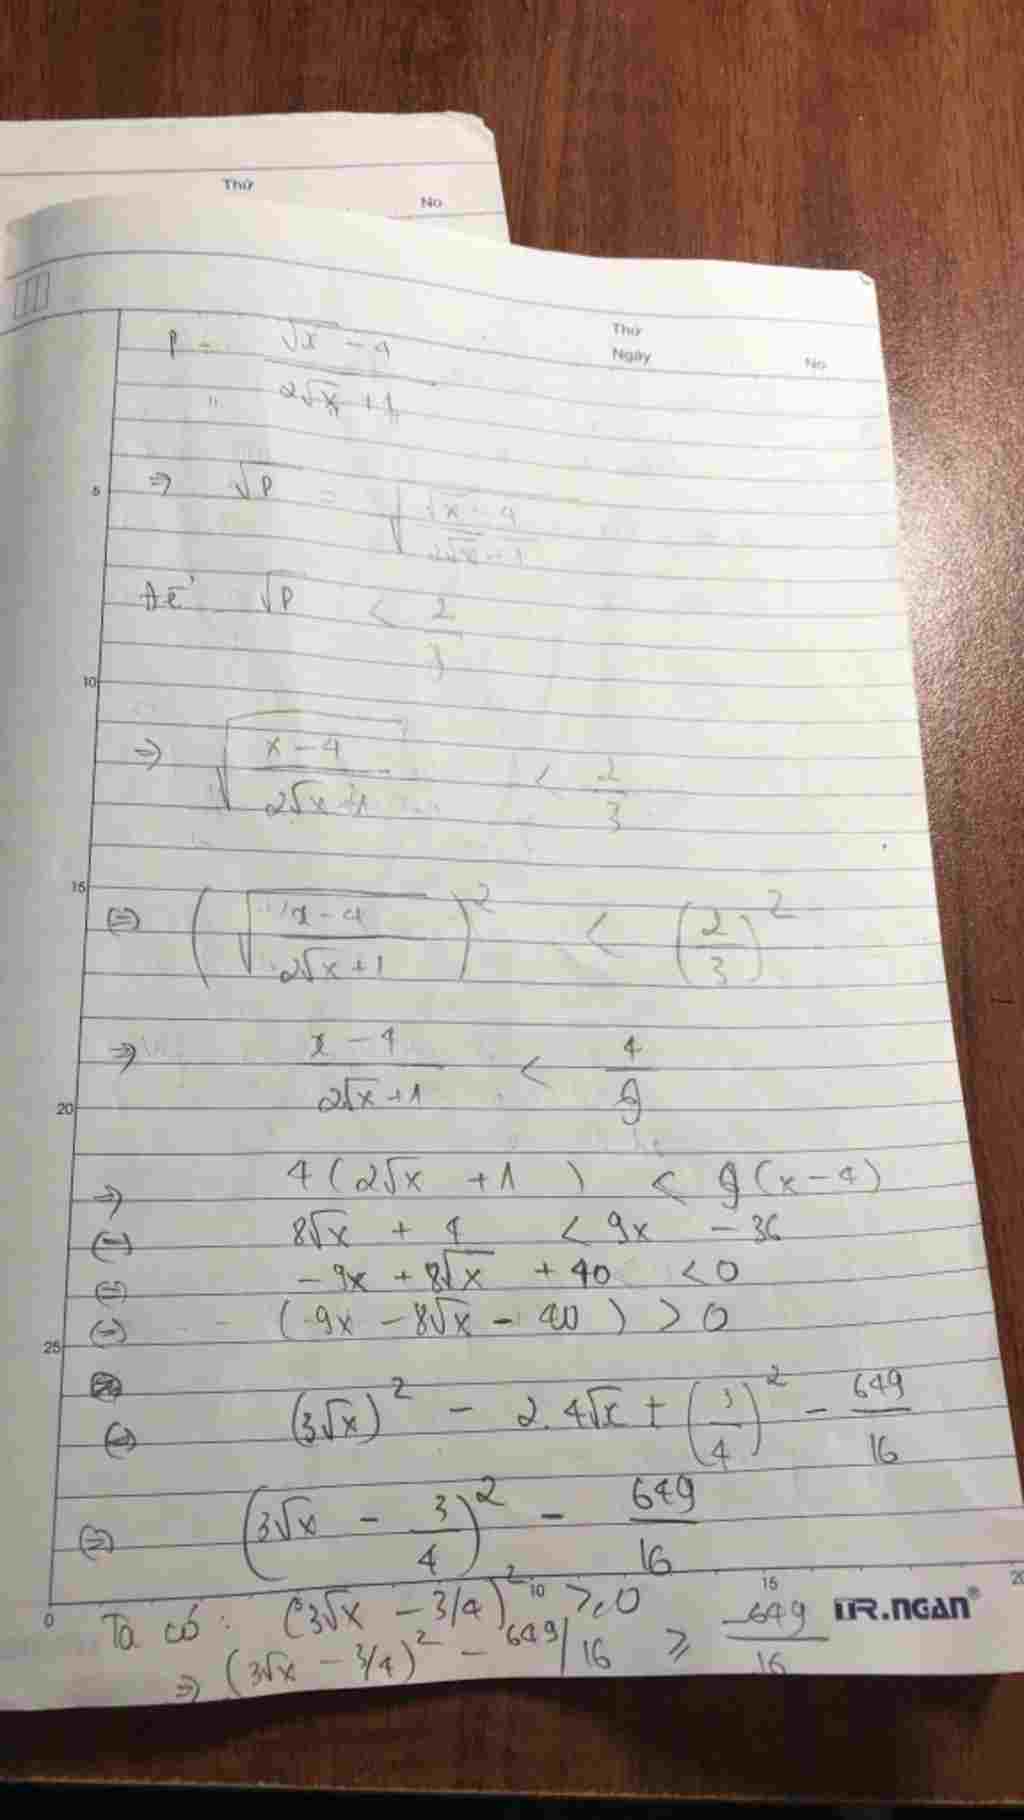 Thứ
No
Thứ
Ngày
No
P = √x - 4 / 2√x + 1
5
⇒ √P = √(√x - 4 / 2√x - 1)
Để √P < 2/3
10
⇒ √(x - 4 / 2√x + 1) < 2/3
15
(=) (√(x - 4 / 2√x + 1))² < (2/3)²
⇒ x - 4 / 2√x + 1 < 4/9
20
⇒ 4(2√x + 1) < 9(x - 4)
(=) 8√x + 4 < 9x - 36
(=) - 9x + 8√x + 40 < 0
25
(=) (9x - 8√x - 40) > 0
(=) (3√x)² - 2.4√x + (3/4)² - 649/16
(=) (3√x - 3/4)² - 649/16
0 10 15 20
Ta có: (3√x - 3/4)² ≥ 0
TR.NGAN®
⇒ (3√x - 3/4)² - 649/16 ≥ -649/16